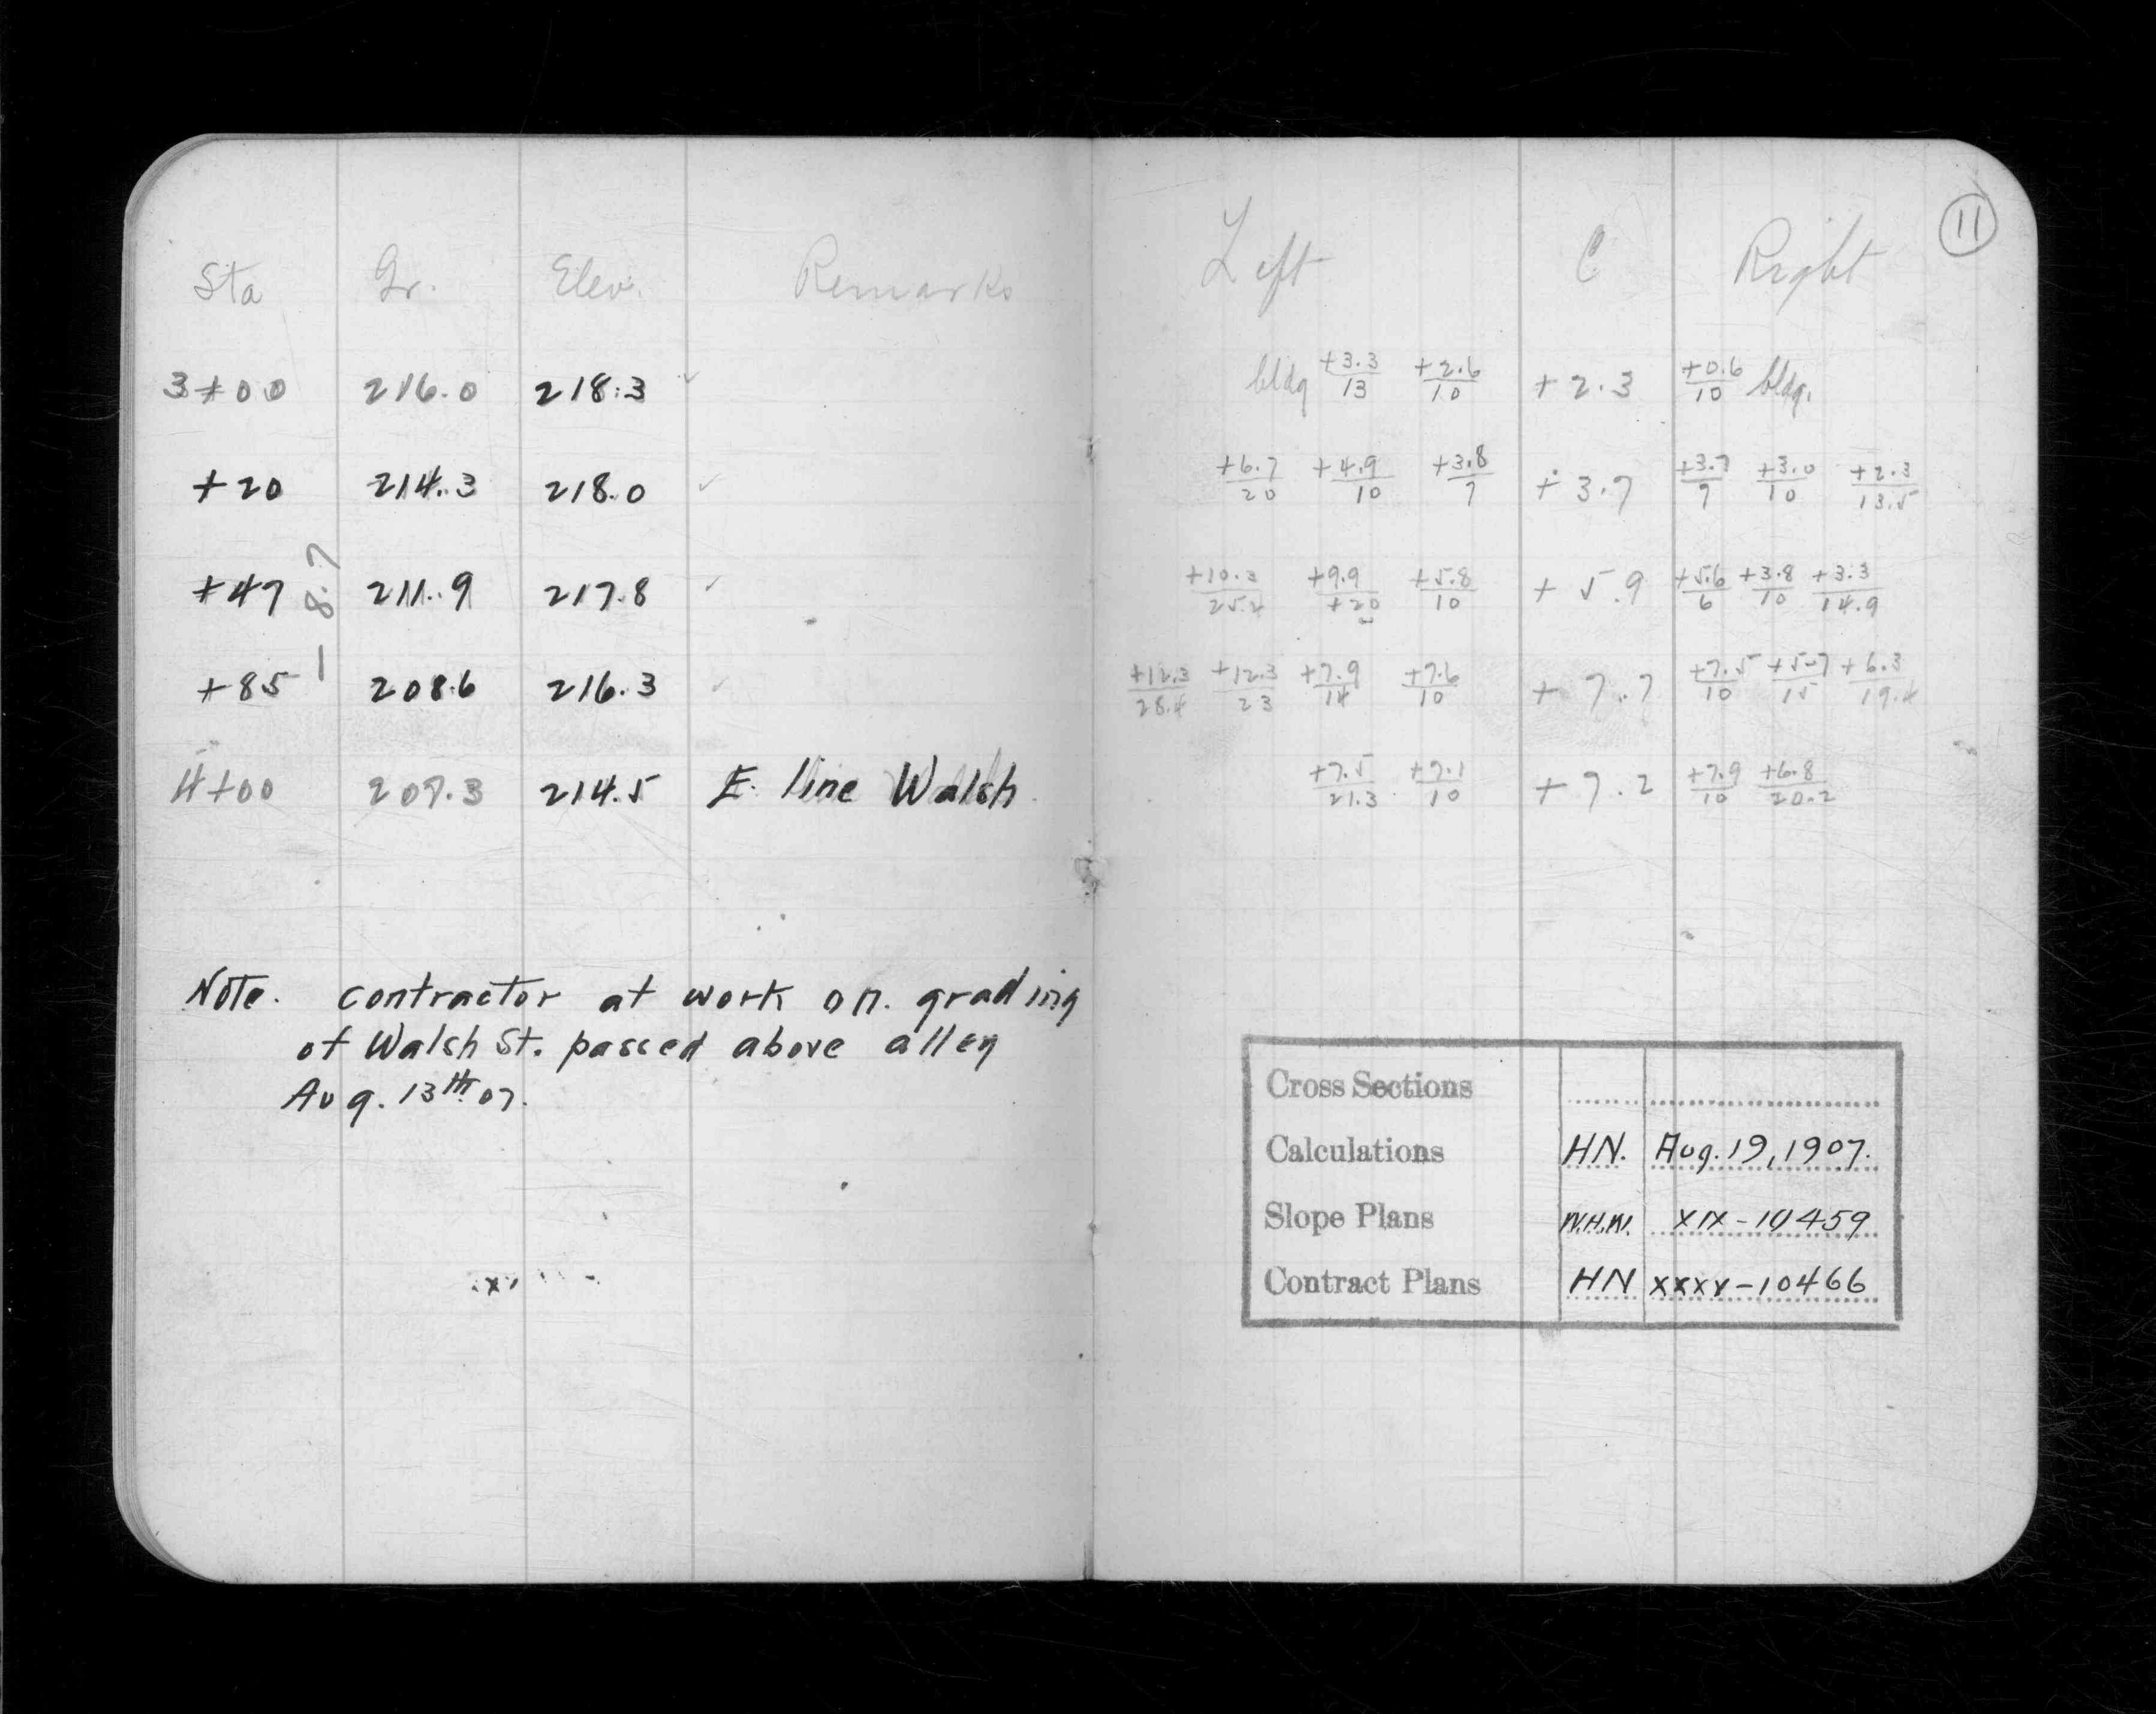 Sta Gr. Elev. Remarks
3+00 216.0 218.3 ✓
+20 214.3 218.0 ✓
+47 211.9 217.8 ✓
-8.7
+85 208.6 216.3 ✓
4+00 207.3 214.5 E. line Walsh
Note. contractor at work on. grading
of Walsh St. passed above alley
Aug. 13th 07.
11
Left C Right
bldg +3.3/13 +2.6/10 +2.3 +0.6/10 bldg.
+6.7/20 +4.9/10 +3.8/7 +3.7 +3.7/7 +3.0/10 +2.3/13.5
+10.3/25.2 +9.9/+20 +5.8/10 +5.9 +5.6/6 +3.8/10 +3.3/14.9
+12.3/28.4 +12.3/23 +7.9/14 +7.6/10 +7.7 +7.5/10 +5.7/15 +6.3/19.4
+7.5/21.3 +7.1/10 +7.2 +7.9/10 +6.8/20.2
Cross Sections
Calculations HN. Aug. 19, 1907.
Slope Plans W.H.W. XIX-10459
Contract Plans HN XXXX-10466